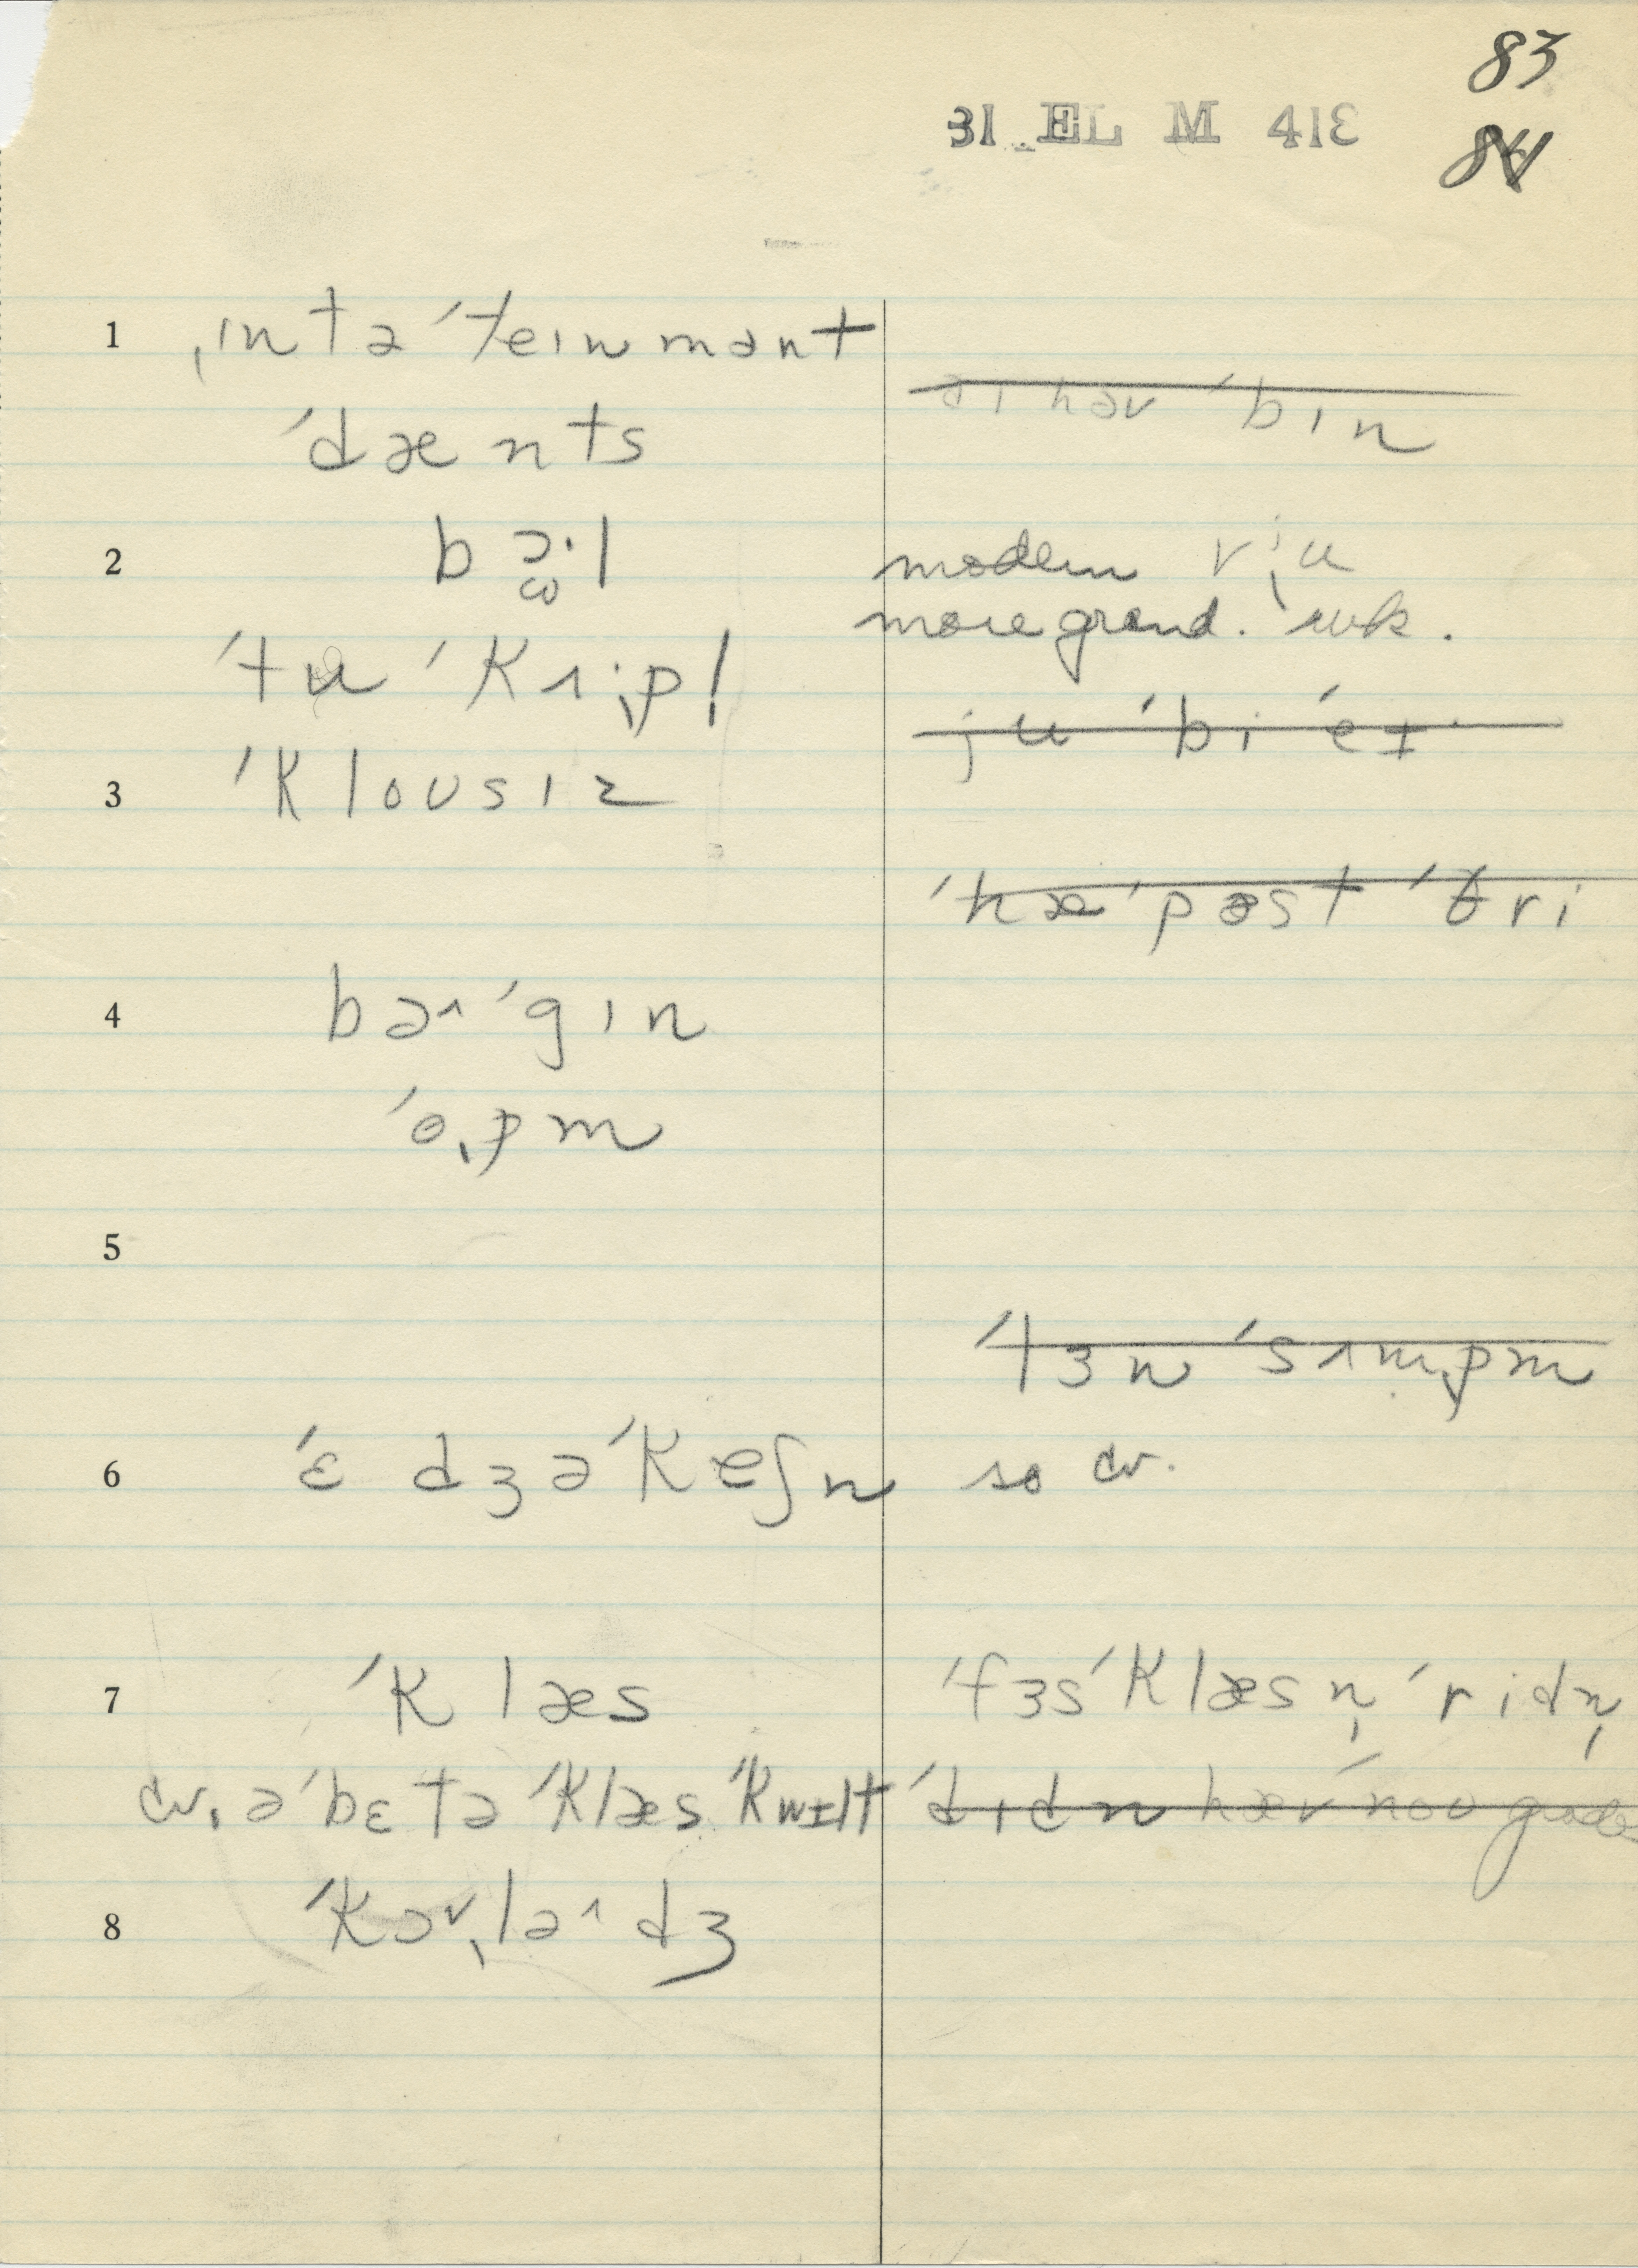 83
31 EL M 413
84
1 ˌɪntəˈteɪnmənt
a ɪ həv ˈbɪn
ˈdænts
2 bɔ·l modern vɪ;u
more grand. wk.
ˈtu ˈkʌpl
ju ˈbi ˈet
3 ˈkloʊsɪz
ˈhæˈpæst ˈθri
4 bə˄ˈgɪn
ˈopm
5
ˈtɜn ˈsʌmpm
6 ˈɛdʒəˈkeʃn so cv.
7 ˈklæs ˈfɜsˈklæs n̩ ˈridn̩
cv. əˈbɛtə ˈklæs ˈkwɪlt ˈdɪdn hævˈnoʊ grades
8 ˈkɔ˅ˌlə˄dʒ